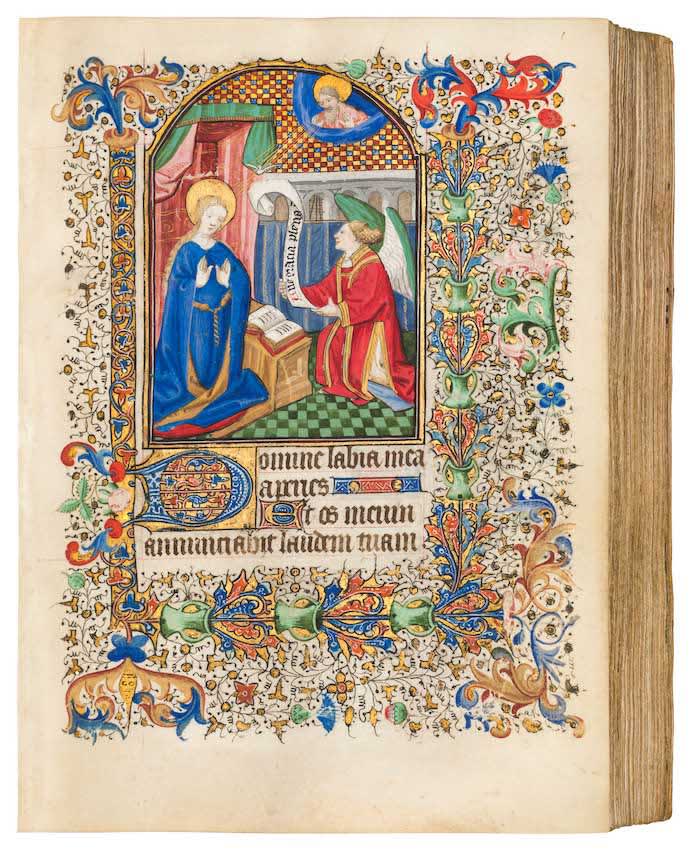 Ave gracia plena
Domine labia mea
aperies
Et os meum
annunciabit laudem tuam